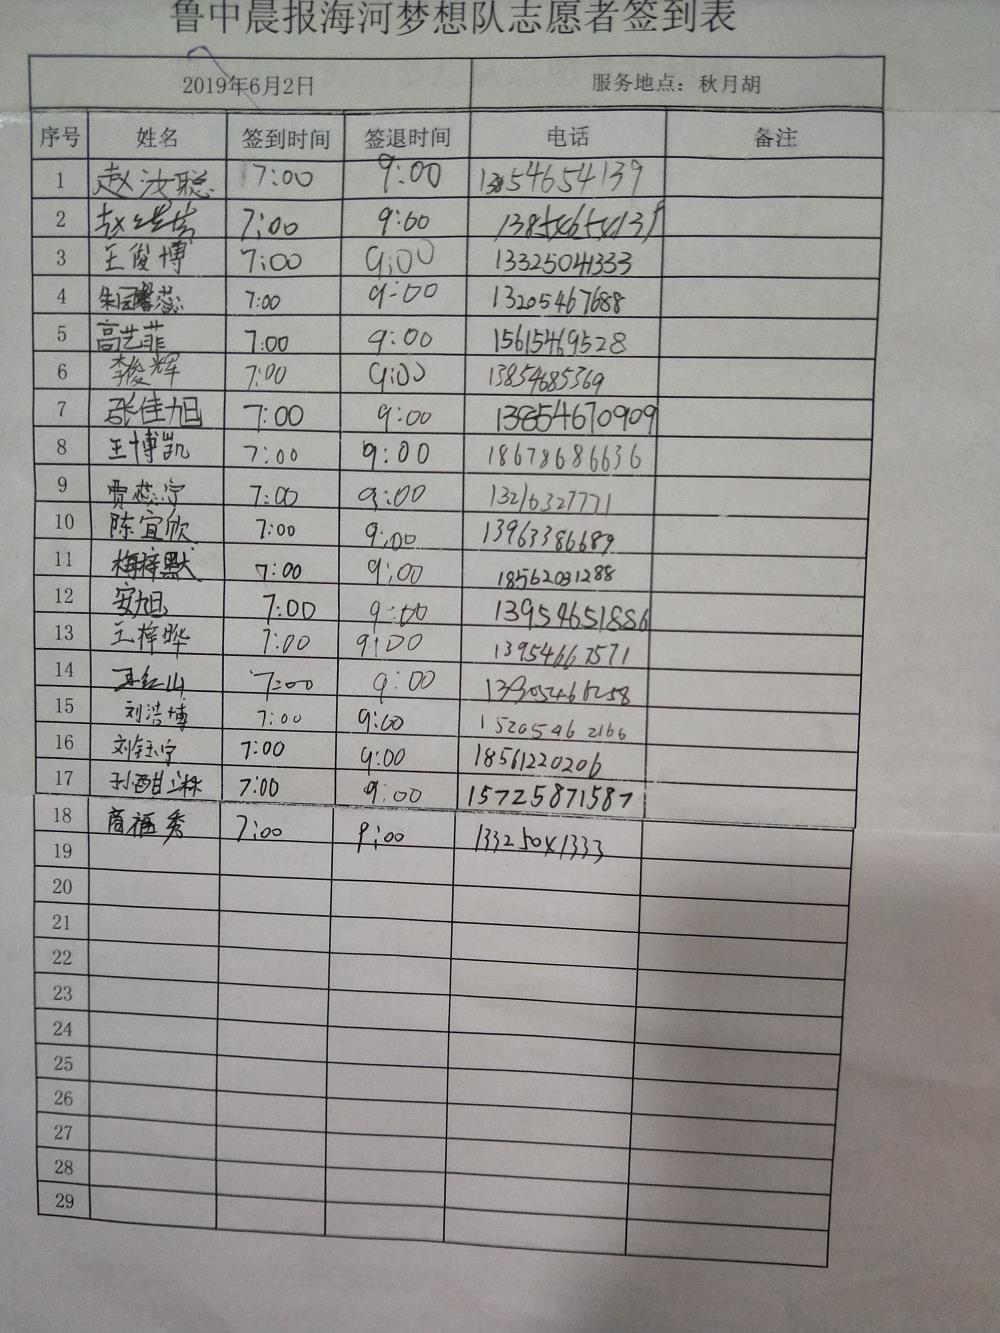 鲁中晨报海河梦想队志愿者签到表
2019年6月2日 服务地点：秋月胡
序号 姓名 签到时间 签退时间 电话 备注
1 赵汝聪 7:00 9:00 13854654139
2 赵 7:00 9:00
3 王俊博 7:00 9:00 13325041333
4 朱 蕊 7:00 9:00 13205467688
5 高艺菲 7:00 9:00 15615469528
6 李俊辉 7:00 9:00 13854685369
7 张佳旭 7:00 9:00 13854670909
8 王博凯 7:00 9:00 18678686636
9 贾蕊宁 7:00 9:00 13216327771
10 陈宜欣 7:00 9:00 13963386689
11 梅梓默 7:00 9:00 18562031288
12 安旭 7:00 9:00 13954651886
13 王梓晔 7:00 9:00 13954667571
14 7:00 9:00
15 刘浩博 7:00 9:00 15205462166
16 刘钰宁 7:00 9:00 18561220206
17 7:00 9:00 15725871587
18 商福秀 7:00 9:00
19
20
21
22
23
24
25
26
27
28
29